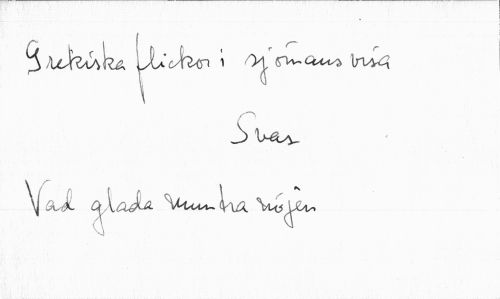 Grekiska flickor i sjömansvisa
Svar
Vad glada muntra nöjen